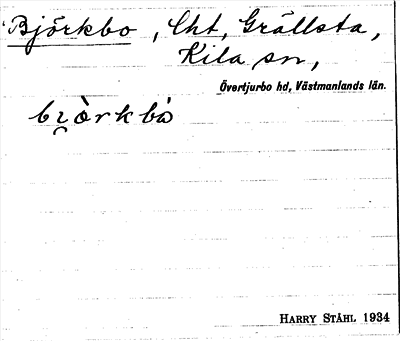 Björkbo, lht, Grällsta,
Kila sn,
Övertjurbo hd, Västmanlands län.
HARRY STÅHL 1934